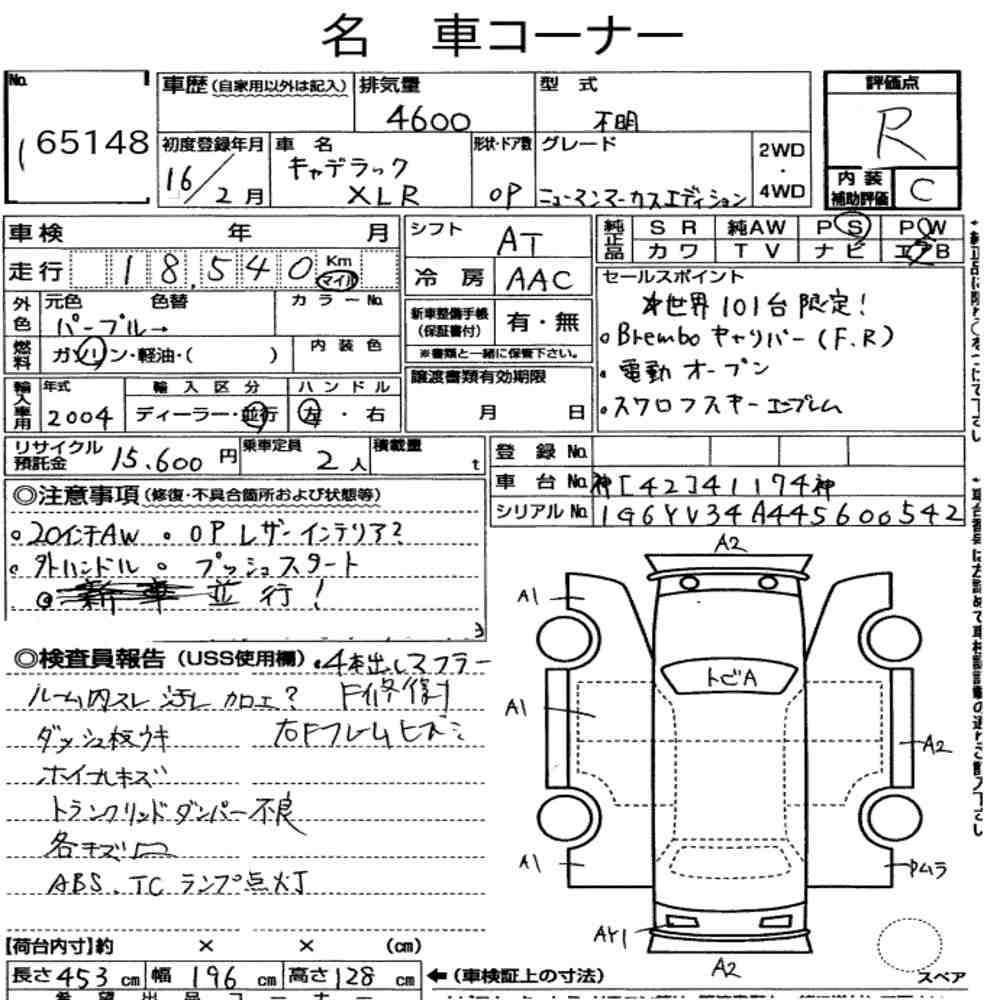 名 車コーナー
No. 165148
車歴(自家用以外は記入) 排気量 4600 型 式 不明
評価点 R
初度登録年月 16/2月 車 名 キャデラック XLR 形状・ドア数 OP グレード ニューマンマーカスエディション 2WD・4WD
内装補助評価 C
車検 年 月
走行 18,540 Km マイル
シフト AT
冷房 AAC
純正品 SR 純AW PS PW
カワ TV ナビ エアB
外色 元色 色替 カラーNo.
パープル→
燃料 ガソリン・軽油・( ) 内装色
新車整備手帳(保証書付) 有・無
※書類と一緒に保管下さい。
セールスポイント
☆世界101台限定!
・Bremboキャリパー(F.R)
・電動オープン
・スワロフスキーエンブレム
輸入車用 年式 2004 輸入区分 ディーラー・並行 ハンドル 左・右
譲渡書類有効期限 月 日
リサイクル預託金 15,600円 乗車定員 2人 積載量 t
登録No.
車台No. 神[42]41174神
シリアルNo. 1G6YV34A445600542
◎注意事項(修復・不具合箇所および状態等)
・20インチAW ・OPレザーインテリア?
・外ハンドル ・プッシュスタート
◎ 新車 並行!
◎検査員報告(USS使用欄) ・4本出しマフラー
ルーム内スレ 汚レ カロエ? F修復
ダッシュ板ウキ 右Fフレームヒズミ
ホイールキズ
トランクリッドダンパー不良
各キズ凹
ABS、TCランプ点灯
A2
A1
トビA
A1
A2
A1
Pムラ
AY1
A2
スペア
【荷台内寸】約 × × (cm)
長さ453cm 幅196cm 高さ128cm ←(車検証上の寸法)